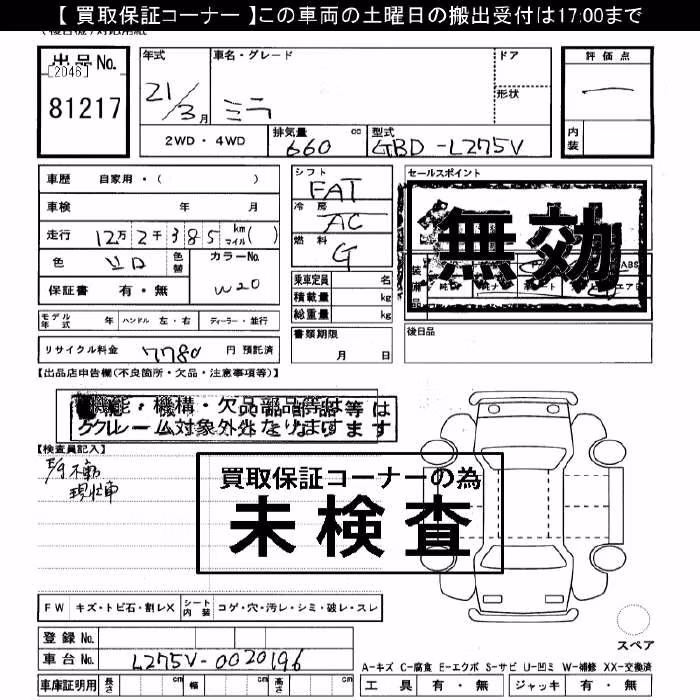 【 買取保証コーナー 】この車両の土曜日の搬出受付は17:00まで
出品No.
[2046]
81217
年式 車名・グレード ドア
形状
21/3月 ミラ
2WD・4WD 排気量 660 cc 型式 GBD-L275V
評価点
内装
車歴 自家用・( )
車検 年 月
走行 12万2千385 km マイル( )
色 シロ 色替 カラーNo. W20
保証書 有・無
モデル年式 年 ハンドル 左・右 ディーラー・並行
リサイクル料金 7780 円 預託済
シフト FAT
冷房 AC
燃料 G
乗車定員 名
積載量 kg
総重量 kg
書類期限 月 日
セールスポイント
無効
後日品
【出品店申告欄(不良箇所・欠品・注意事項等)】
機能・機構・欠品部品等は
クレーム対象外となります
【検査員記入】
E/g不動
現状車
買取保証コーナーの為
未検査
FW キズ・トビ石・割レX シート内装 コゲ・穴・汚レ・シミ・破レ・スレ
登録No.
車台No. L275V-0020196
車庫証明用 長さ cm 幅 cm 高さ cm
スペア
A-キズ C-腐食 E-エクボ S-サビ U-凹ミ W-補修 XX-交換済
工具 有・無 ジャッキ 有・無